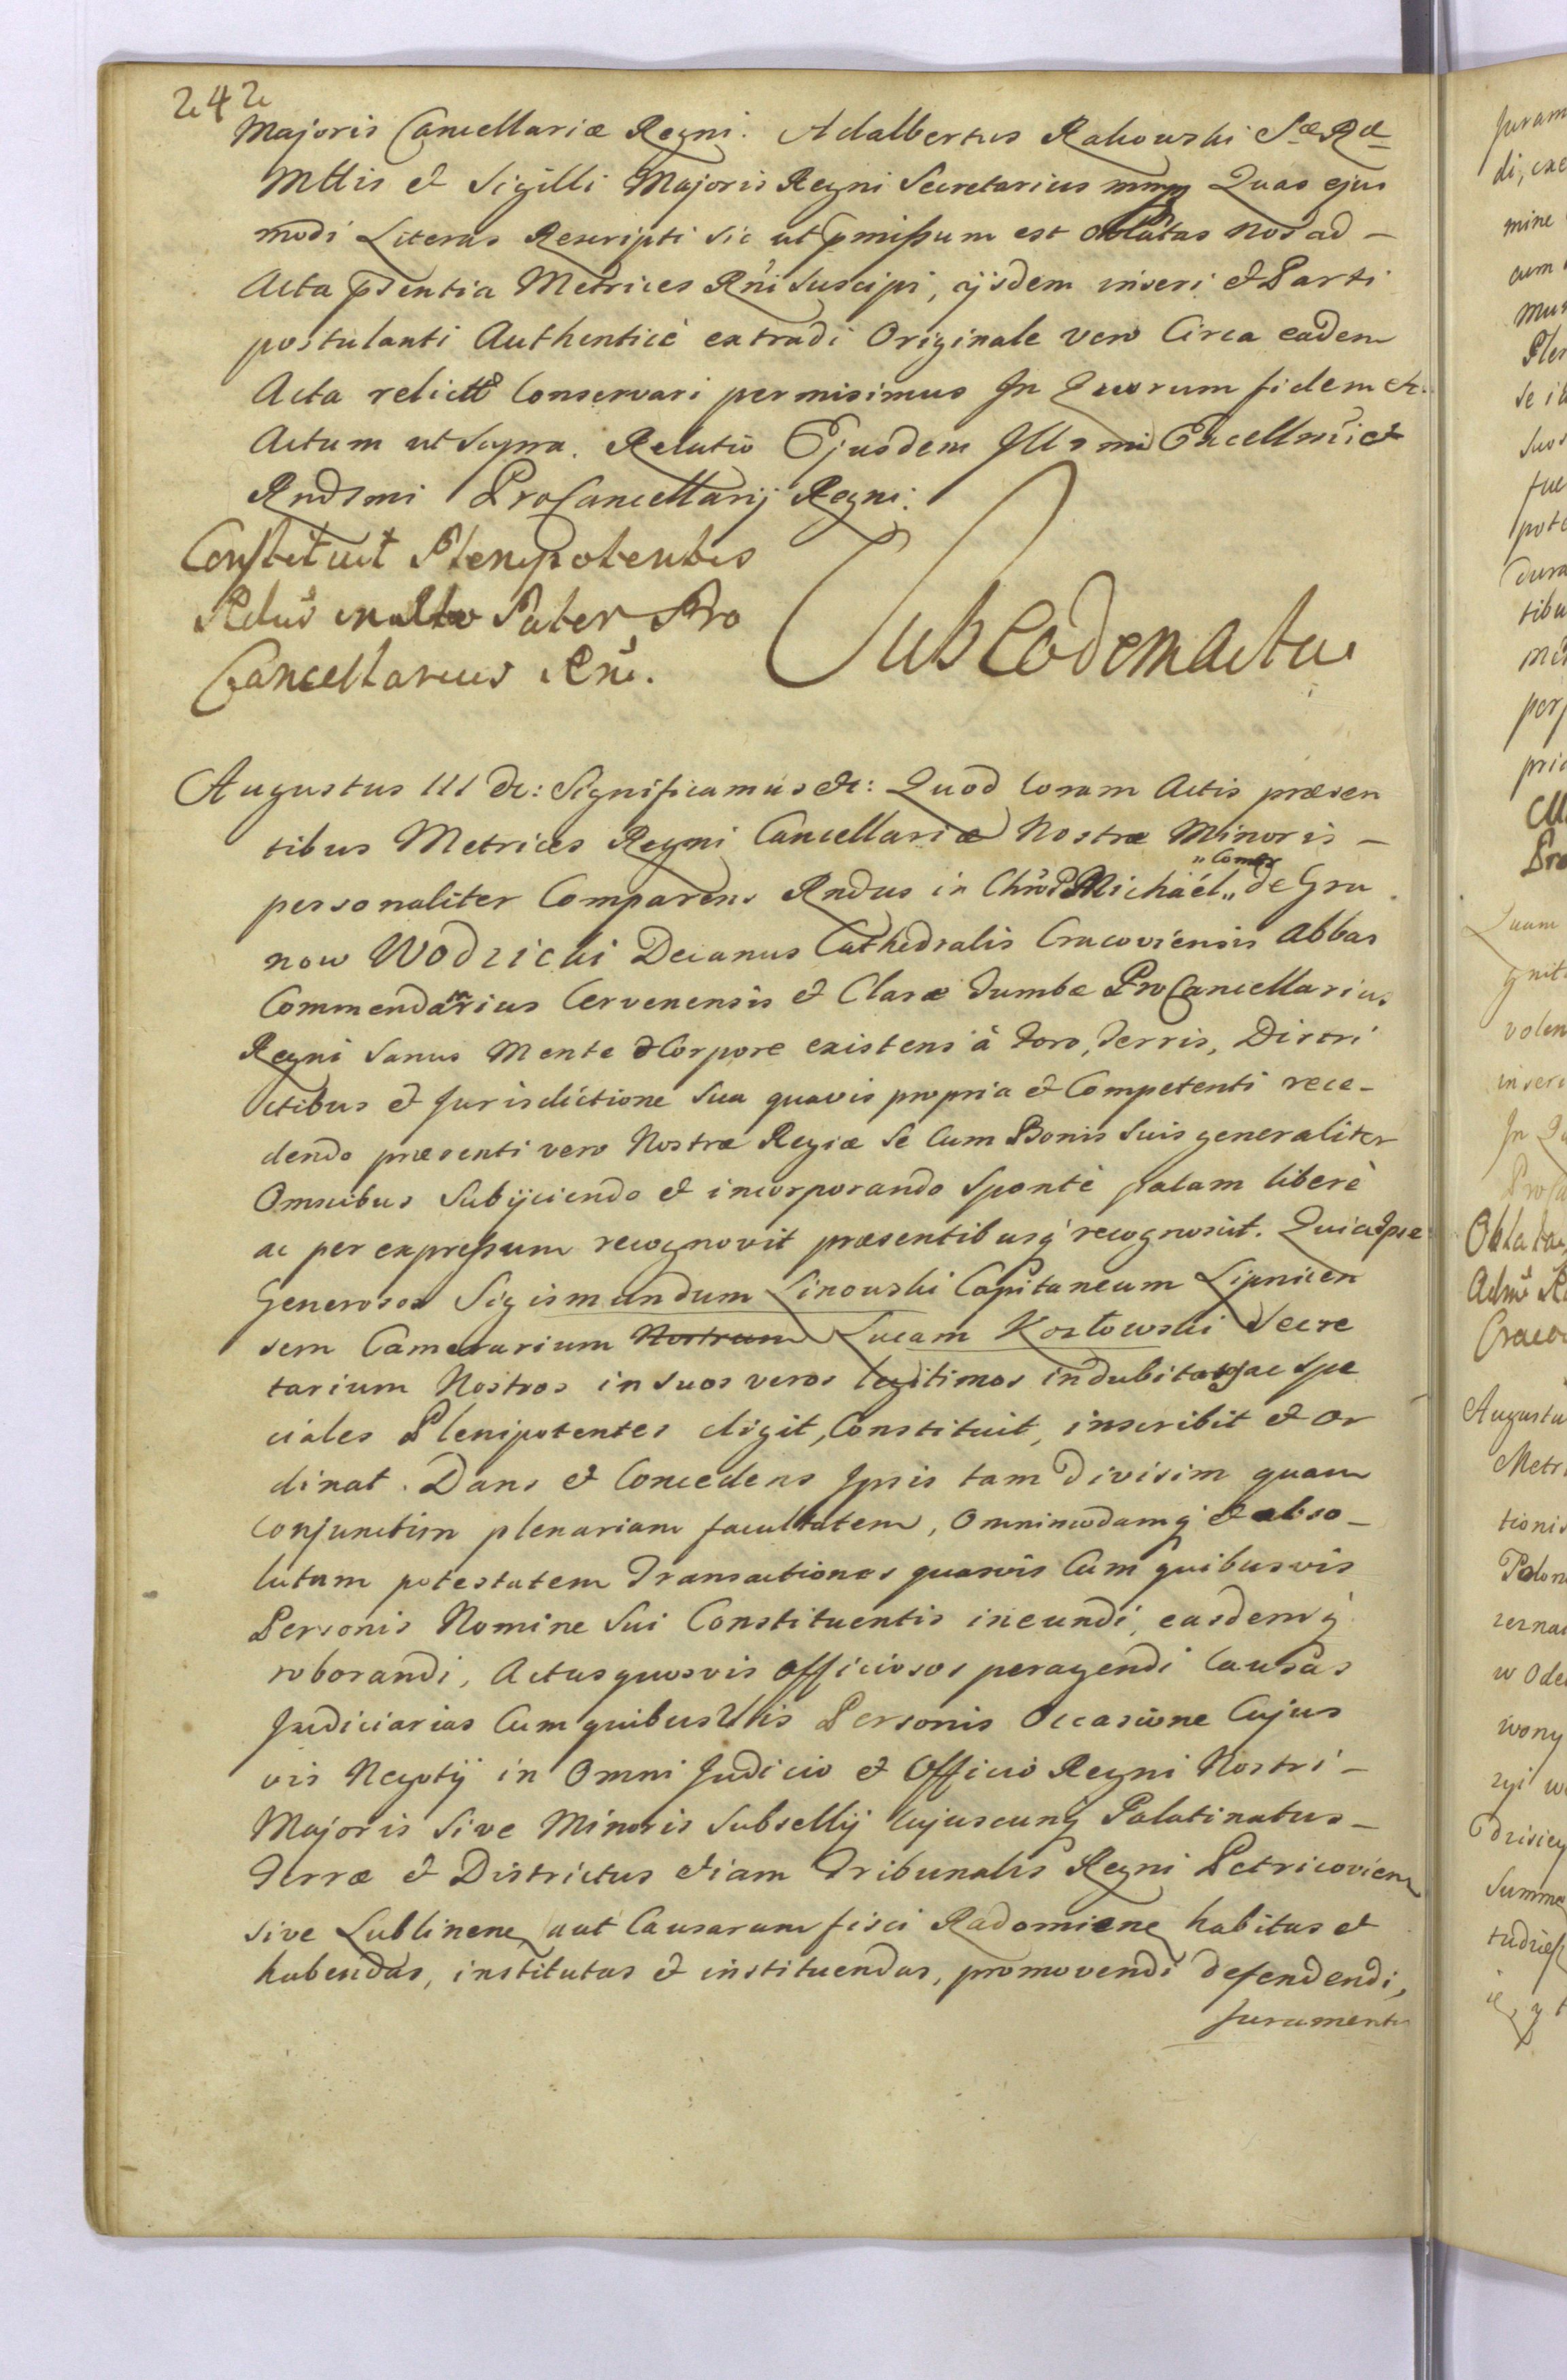 242
Majoris Cancellariæ Regni. Adalbertus Rakowski Sæ Ræ
Mttis et Sigilli Majoris Regni Secretarius mmp Quas ejus
modi Literas Rescripti sic ut pmissum est oblatas Nos ad –
Acta pdsentia Metrices Rñi suscipi, ijsdem inseri et Parti
postulanti Authenticè extradi Originale vero Circa eadem
Acta relicto Conservari permisimus In Quorum fidem etc.
Actum ut Supra. Relatio Ejusdem Illsmi Excellmi et
Rndsmi ProCancellarij Regni.
Constituit Plenipotentes
Rdus in Pater Pro
Cancellarius Rñi.
Sub Eodem actu
Augustus III etc: Significamus etc: Quod Coram Actis præsen
tibus Metrices Regni Cancellariæ Nostræ Minoris –
personaliter Comparens Rndus in Chro P Michaél „ de Gra
„Comes
now Wodzicki Decanus Cathedralis Cracoviensis Abbas
Commendatarius Cervenensis et Claræ Tumbæ ProCancellarius
Regni Sanus Mente et Corpore existens à Foro, Terris, Distri
ctibus et Jurisdictione Sua quavis propria et Competenti rece-
dendo præsenti vero Nostræ Regiæ Se Cum Bonis Suis generaliter
Omnibus Subijciendo et incorporando Spontè palam liberè
ac per expressum recognovit præsentibusq recognoscit. Quia Ipse
Generosos Sigismundum Linowski Capitaneum Lipnicen
sem Camerarium Nostrum Lucam Kozłowski Secre
tarium Nostros in suos veros legitimos indubitatosq ac spe
ciales Plenipotentes eligit, Constituit, inscribit et or
dinat. Dans et Concedens Ipsis tam Divisim quam
Conjunctim plenariam facultatem, Omnimodamq et abso-
lutam potestatem Transactiones quasvis Cum quibusvis
Personis Nomine Sui Constituentis ineundi, easdemq
roborandi, Actus quosvis Officiosos peragendi Causas
Judiciarias Cum quibusvis Personis Occasione Cujus
vis Negotij in Omni Judicio et Officio Regni Nostri –
Majoris Sive Minoris Subsellij Cujuscunq Palatinatus –
Terræ et Districtus etiam Tribunalis Regni Petricovien
sive Lublinen aut Causarum fisci Radomien habitas et
habendas, institutas et instituendas, promovendi defendendi,
Juramenta